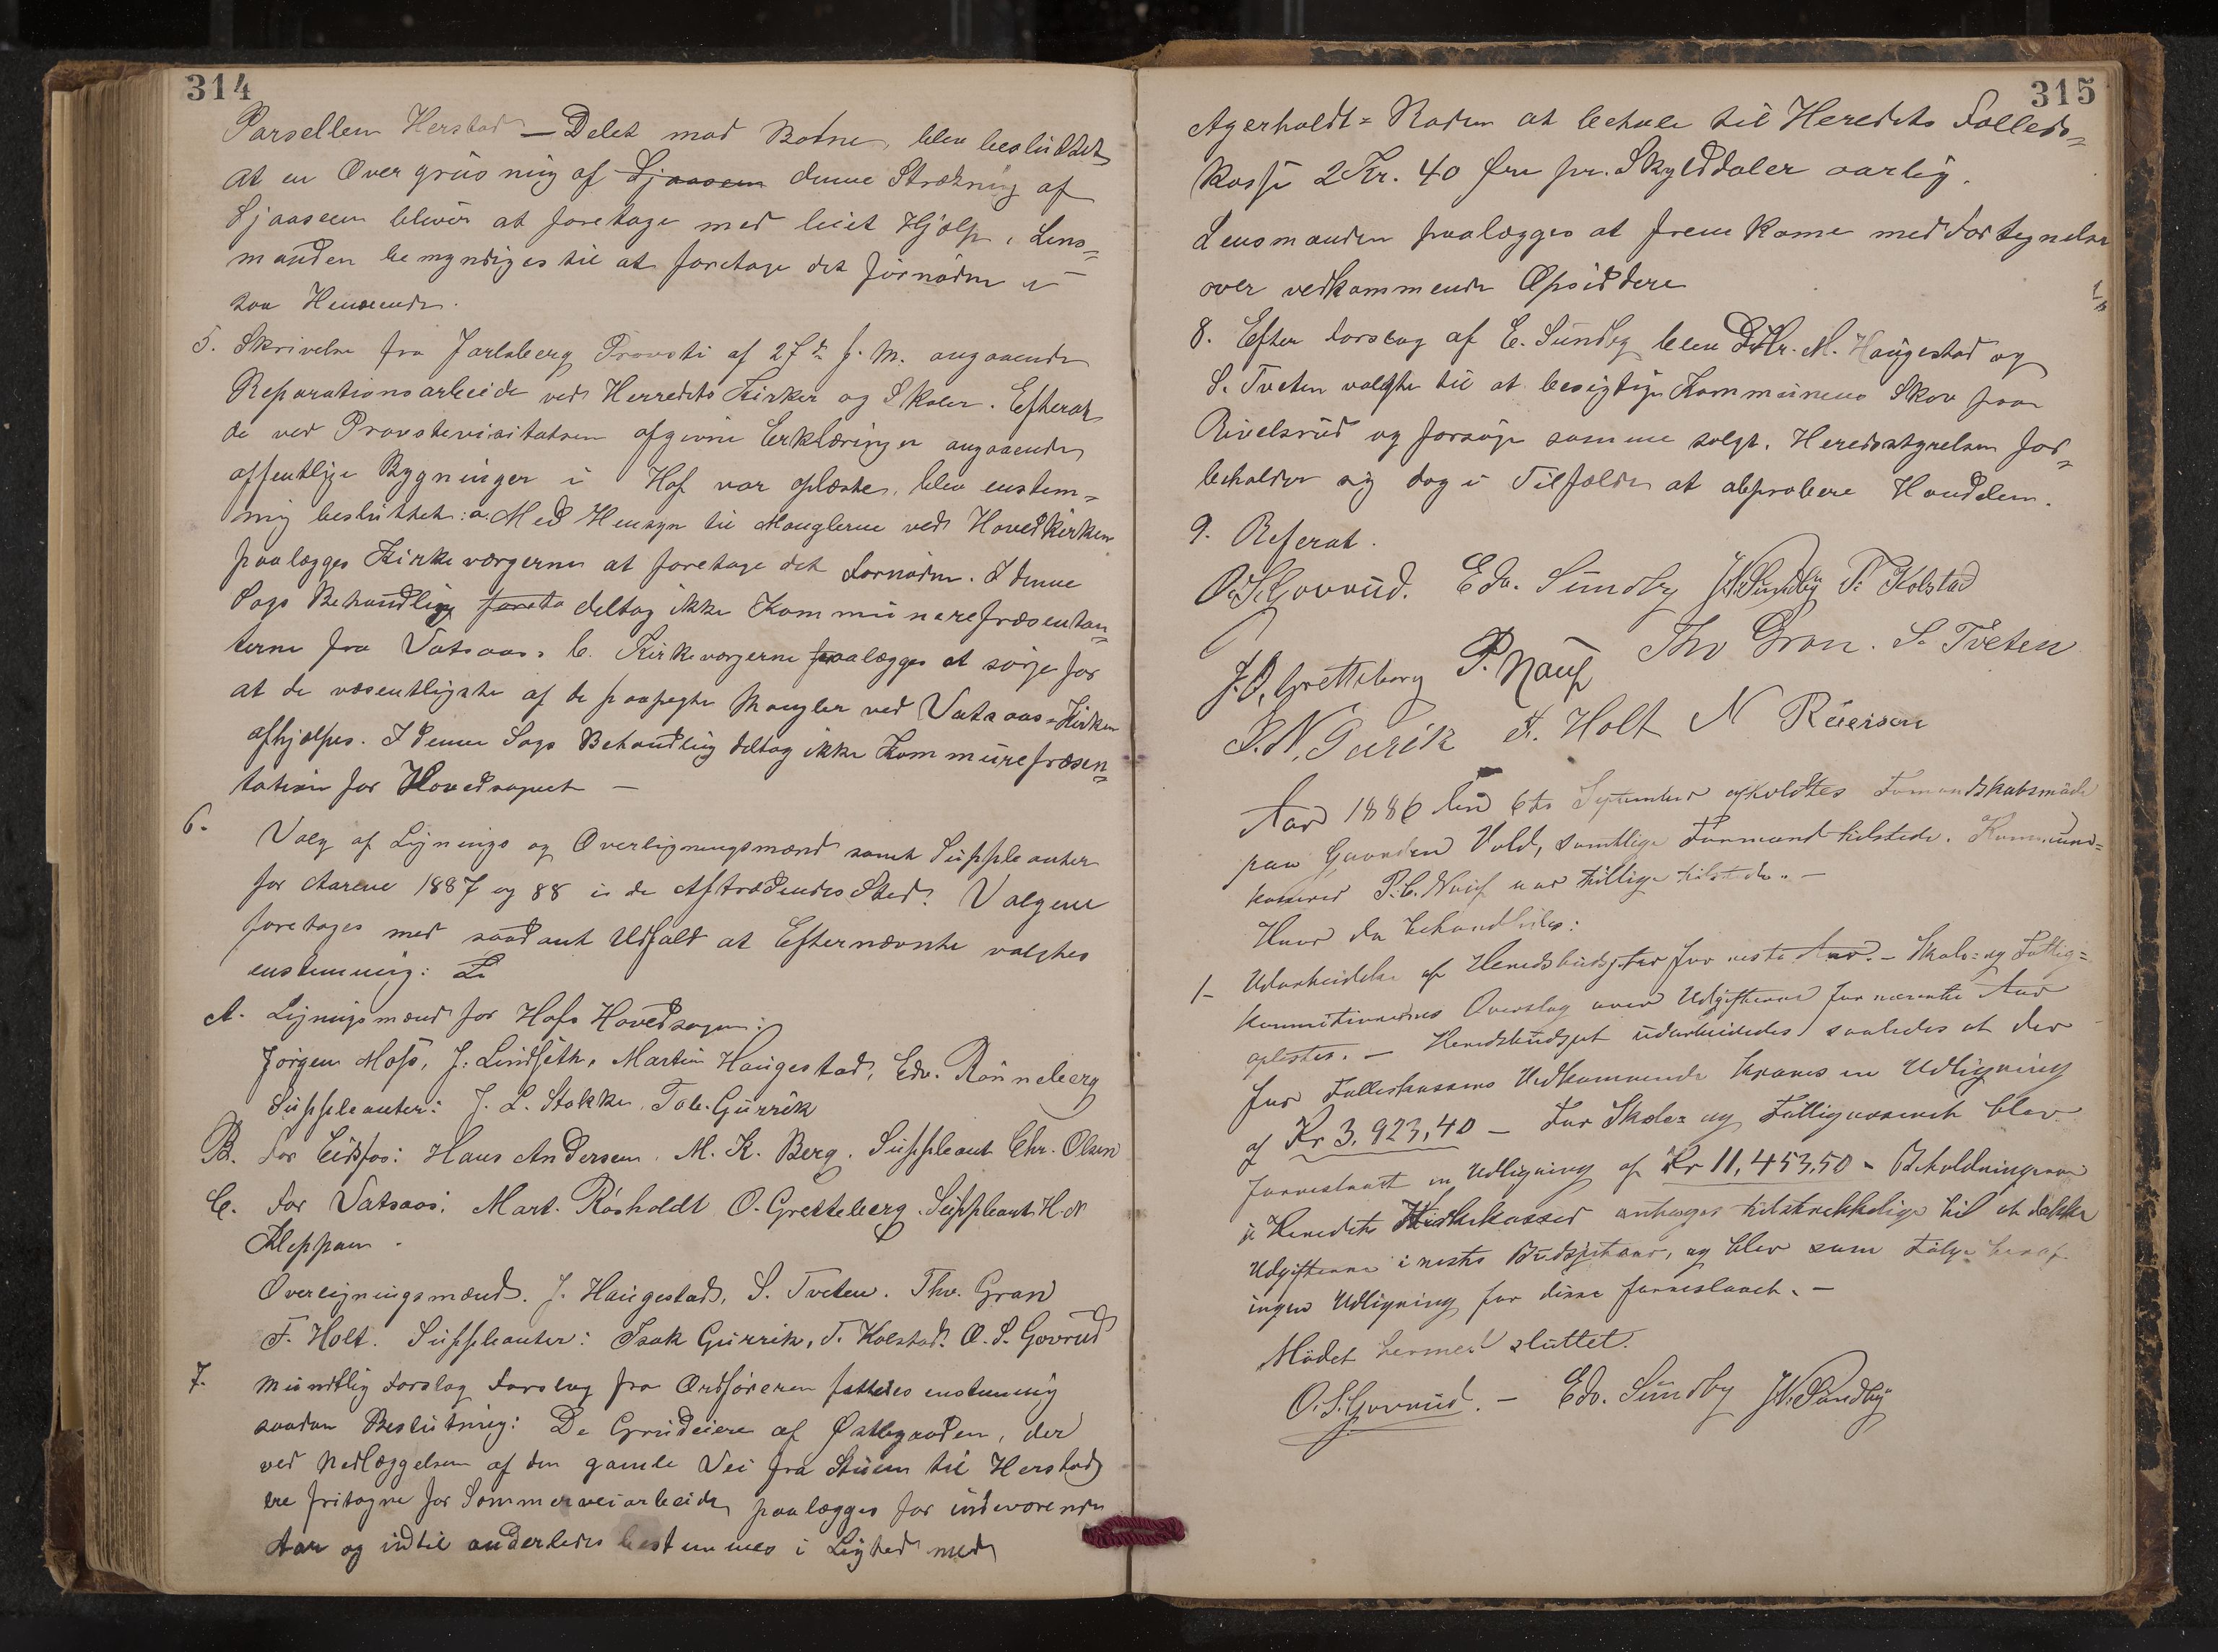 314
Parsellen Herstad – Delet mod Botne, blev besluttet
at en Overgrusning af Sjaasen denne Strækning af
Sjaasen bliver at foretage med leiet Hjælp, Lens=
manden bemyndiges til at foretage det fornødne i
saa Henseende.
5. Skrivelse fra Jarlsberg Provsti af 27de f. M. angaaende
Reparationsarbeide ved Herredets Kirker og Skoler. Efterat
de ved Provstevisitatsen afgivne Erklæringer angaaende
offentlige Bygninger i Hof var oplæste, blev enstem=
mig besluttet: a. Med Hensyn til Manglerne ved Hovedkirken
paalægges Kirkeværgerne at foretage det Fornødne. I denne
Sags Behandling foreto deltog ikke Kommunerepræsentan=
terne fra Vatsaas. b. Kirkeværgerne paalægges at sørge for
at de væsentligste af de paapegte Mangler ved Vatsaas=Kirken
afhjælpes. I denne Sags Behandling deltog ikke Kommunerepræsen=
tation for Hovedsognet –
6. Valg af Lignings og Overligningsmænd samt Suppleanter
for Aarene 1887 og 88 i de Aftrædendes Sted. Valgene
foretages med saadant Udfald at Efternævnte valgtes
enstemmig: L
A. Ligningsmænd for Hofs Hovedsogn:
Jørgen Moss, J. Lindseth, Martin Haugestad, Edv. Rønneberg
Suppleanter: J. L. Stokke, Tob. Gurrik
B. For Eidsfos: Hans Andersen, M. K. Berg. Suppleant Chr. Olsen
C. For Vatsaas: Mart. Røsholdt O. Gretteberg. Suppleant H. N
Kleppan.
Overligningsmænd. J. Haugestad, S. Tveten. Thv. Gran
F. Holt. Suppleanter: Isak Gurrik, T. Kolstad. O. S. Govrud
7. Mundtlig Forslag Forslag fra Ordføreren fattedes enstemmig
saadan Beslutning: De Grundeiere af Østbygden, der
ved Nedlæggelsen af den gamle Vei fra Stuen til Herstad
ere fritagne for Sommerveiarbeide, paalægges for indeværende
Aar og indtil anderledes bestemmes i Lighed med
315
Agerholdt=Roden at betale til Heredets Fælleds=
kasse 2 Kr. 40 Øre pr. Skylddaler aarlig.
Lensmanden paalægges at fremkome med Fortegnelse
over vedkommende Opsiddere
8. Efter Forslag af E. Sundby blev DHr. M. Haugestad og
S. Tveten valgte til at besigtige Kommunens Skov paa
Rivelsrud og forsøge samme solgt. Heredsstyrelsen for=
beholder sig dog i Tilfælde at approbere Handelen.
9. Referat.
O. S. Govrud. Edv. Sundby J. N. Sundby T. Kolstad
J. O. Gretteberg P. Nauf Thv Gran. S. Tveten
I. N. Gurik F. Holt N Reiersen
Aar 1886 den 6te September afholdtes Formandskabsmøde
paa Gaarden Vold, samtlige Formænd tilstede. Kommune=
kasserer P. C. Nauf var tillige tilstede. –
Hvor da behandledes:
1– Udarbeidelse af Heredsbudsjetter for neste Aar. – Skole= og Fattig=
kommisionernes Overslag over Udgifterne for næsente Aar
oplestes. – Heredsbudsjet udarbeidedes saaledes at der
for Fælleskassens Vedkommende kræves en Udligning
af Kr 3,923,40 – For Skole= og Fattigvæsenet blev
foreslaaet en Udligning af Kr 11,453,50 – Beholdningerne
i Heredets Kirkekasser antages tilstrekkelige til at dekke
Udgifterne i neste Budsjetaar, og blev som Følge heraf
ingen Udligning for disse foreslaaet. –
Mødet hermed sluttet.
O. S. Govrud. – Edv. Sundby J. N. Sundby